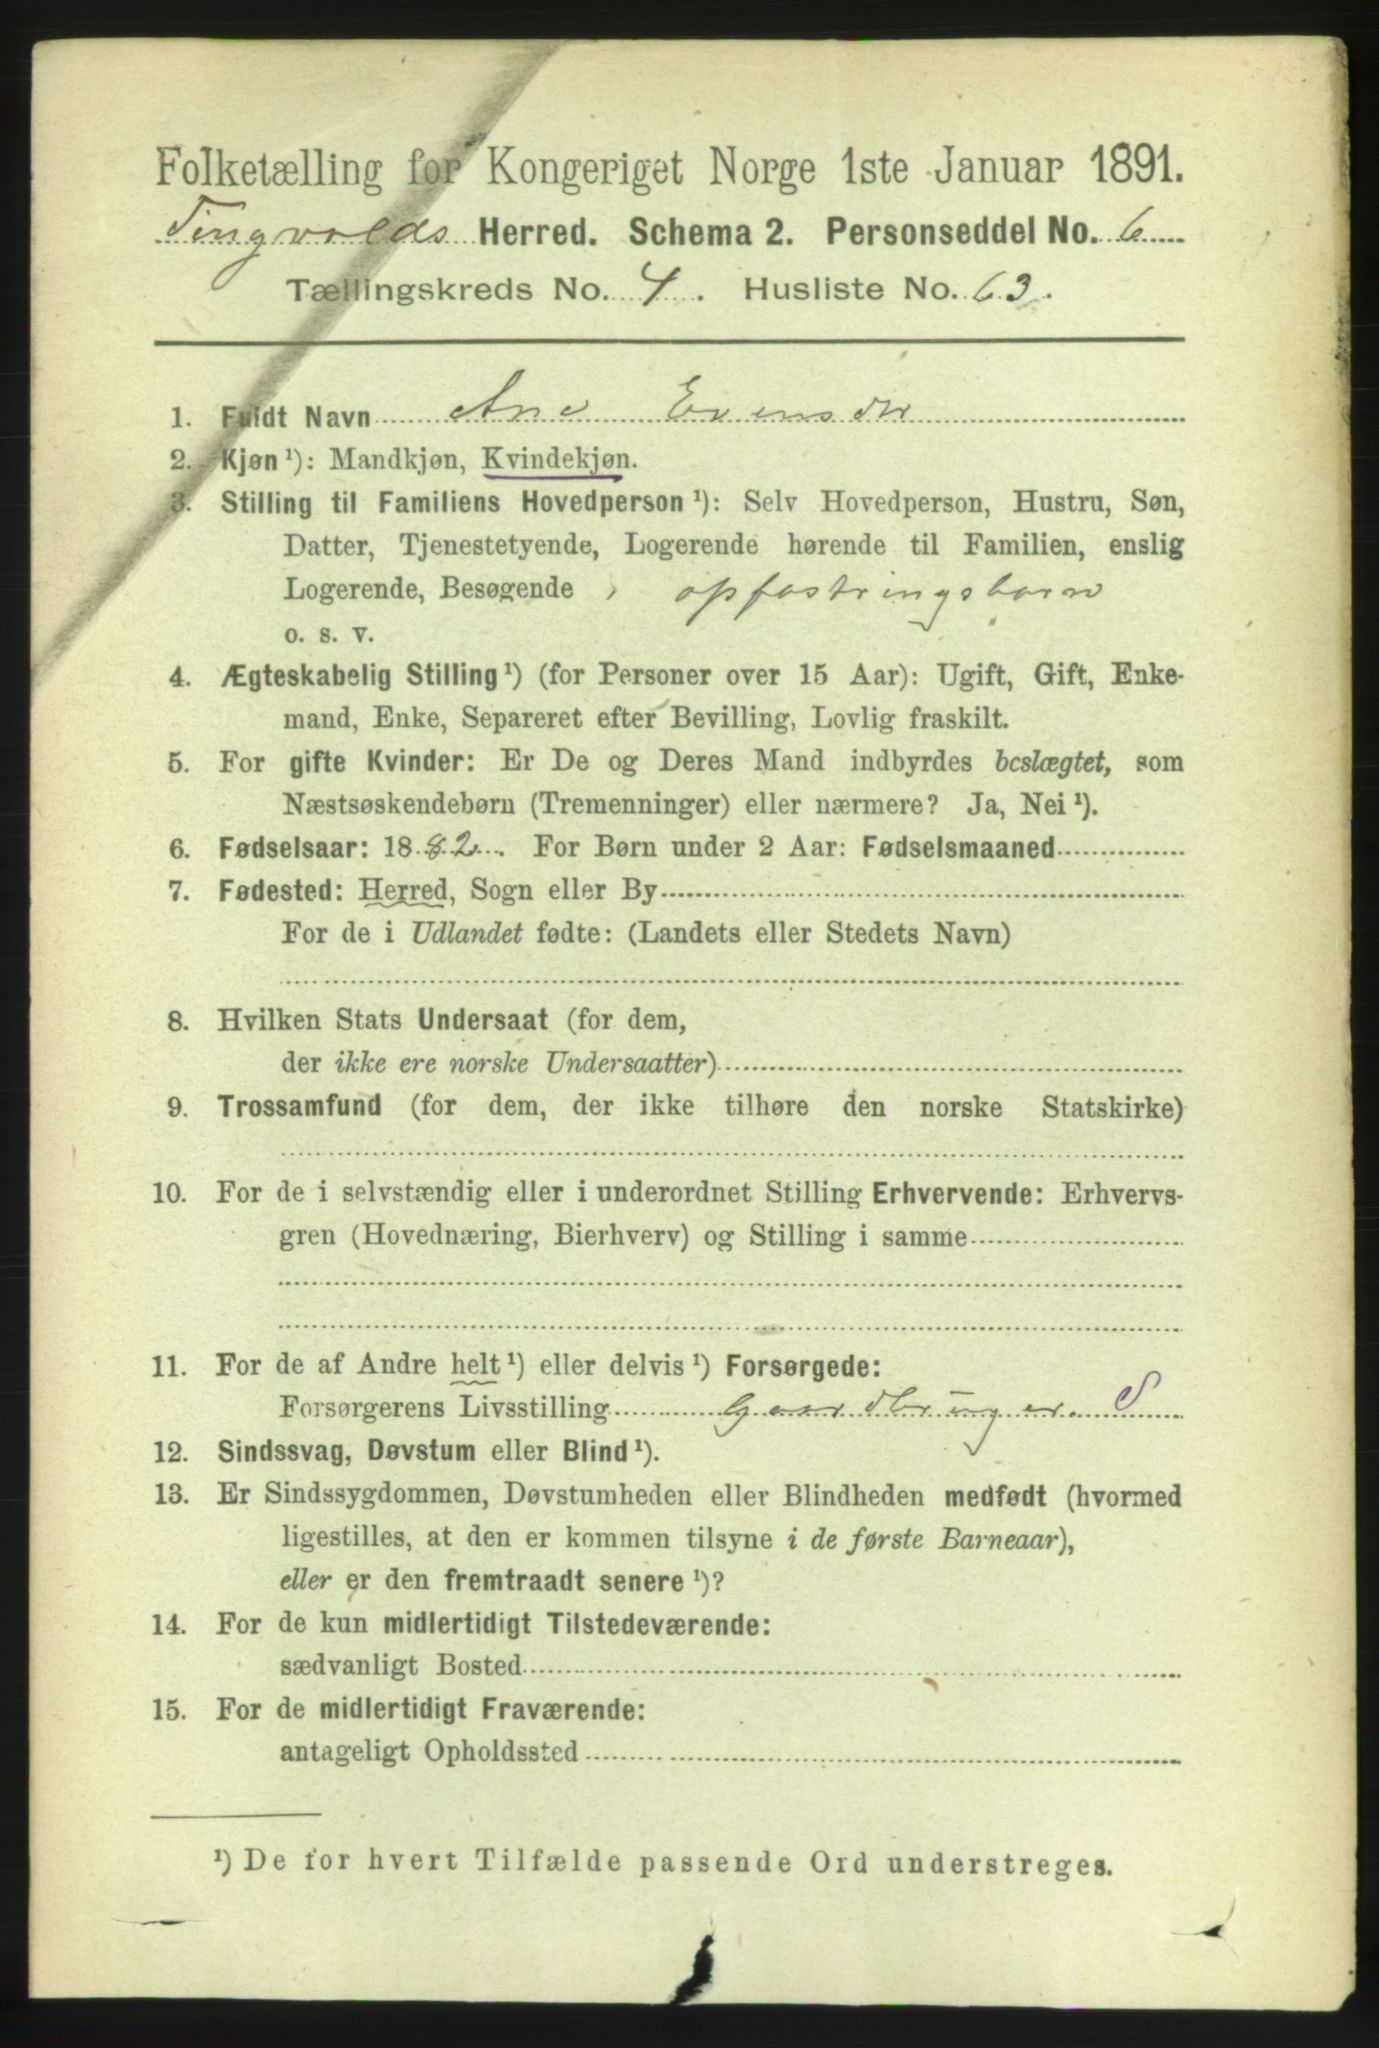 Folketælling for Kongeriget Norge 1ste Januar 1891.
Tingvolds Herred. Schema 2. Personseddel No. 6
Tællingskreds No. 4. Husliste No. 63.
1. Fuldt Navn Ane Evensdtr
2. Kjøn ¹): Mandkjøn, Kvindekjøn.
3. Stilling til Familiens Hovedperson ¹): Selv Hovedperson, Hustru, Søn,
Datter, Tjenestetyende, Logerende hørende til Familien, enslig
Logerende, Besøgende , opfostringsbarn
o. s. v.
4. Ægteskabelig Stilling ¹) (for Personer over 15 Aar): Ugift, Gift, Enke-
mand, Enke, Separeret efter Bevilling, Lovlig fraskilt.
5. For gifte Kvinder: Er De og Deres Mand indbyrdes beslægtet, som
Næstsøskendebørn (Tremenninger) eller nærmere? Ja, Nei ¹).
6. Fødselsaar: 1882. For Børn under 2 Aar: Fødselsmaaned
7. Fødested: Herred, Sogn eller By
For de i Udlandet fødte: (Landets eller Stedets Navn)
8. Hvilken Stats Undersaat (for dem,
der ikke ere norske Undersaatter)
9. Trossamfund (for dem, der ikke tilhøre den norske Statskirke)
10. For de i selvstændig eller i underordnet Stilling Erhvervende: Erhvervs-
gren (Hovednæring, Bierhverv) og Stilling i samme
11. For de af Andre helt ¹) eller delvis ¹) Forsørgede:
Forsørgerens Livsstilling Gaardbruger. S
12. Sindssvag, Døvstum eller Blind ¹).
13. Er Sindssygdommen, Døvstumheden eller Blindheden medfødt (hvormed
ligestilles, at den er kommen tilsyne i de første Barneaar),
eller er den fremtraadt senere ¹)?
14. For de kun midlertidigt Tilstedeværende:
sædvanligt Bosted
15. For de midlertidigt Fraværende:
antageligt Opholdssted
¹) De for hvert Tilfælde passende Ord understreges.